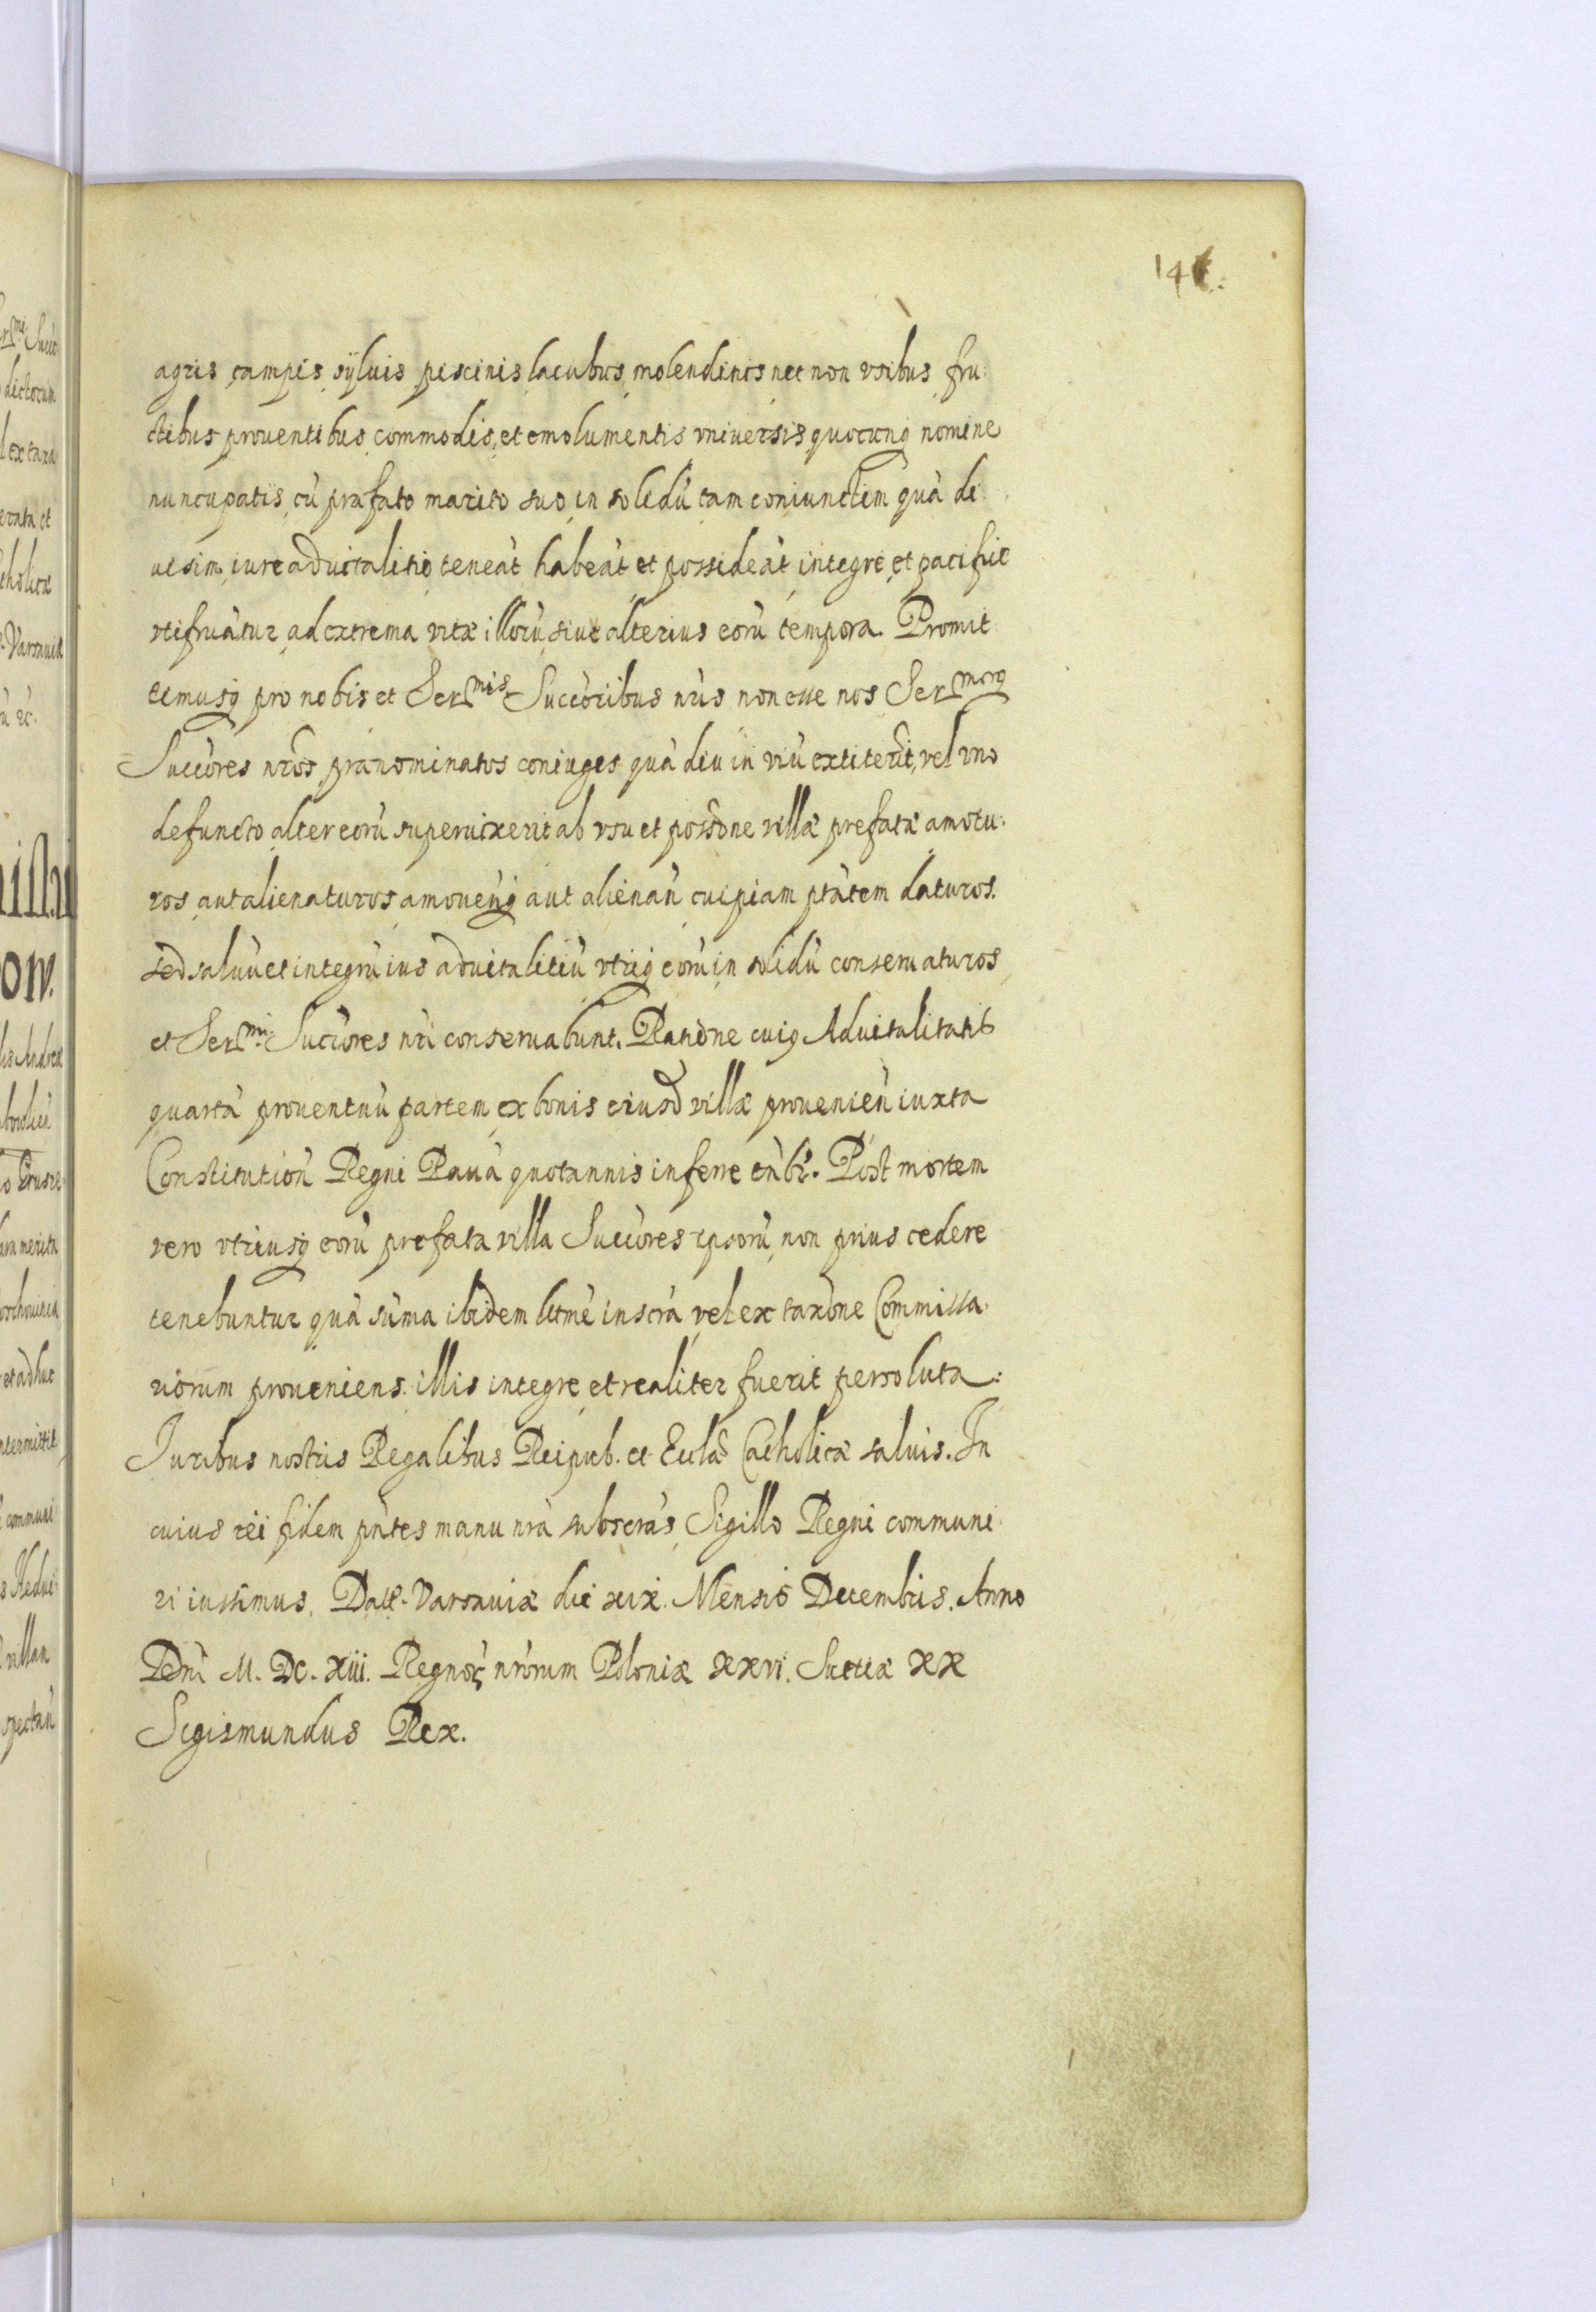 141.
agris campis sÿluis piscinis lacubus molendinis nec non vsibus fru:
ctibus prouentibus commodis, et emolumentis vniuersis quocunq nomine
nuncupatis, cù præfato marito suo in solidù tam coniunctim quà di
uisim iure aduitalitio teneàt habeàt et possideàt integre et pacifice
vtifruàtur, ad extrema vitæ illorù, siue alterius eorù tempora. Promit
timusq pro nobis et Ser^mis Succòribus nr̃is non esse nos Ser^morq
Succòres nr̃os prænominatos coniuges quà diu in viù extiterìt, vel vno
defuncto alter eorù superuixerit ab vsu et possòne villæ prefatæ amotu:
ros aut alienaturos amouenq aut alienan cuipiam ptàtem daturos.
sed saluù et integrù ius aduitalitiù vtriq eorù in solidù conseruaturos
et Ser^mi. Succòres nr̃i conseruabunt. Ratiòne cuiq Aduitalitatis
quartà prouentuù partem ex bonis eiusd villæ prouenien iuxta
Constitution Regni Rauà quotannis inferre tnb̃r. Post mortem
vero vtriusq eorù prefata villa Succòres ipsorù non prius cedere
tenebuntur quà sùma ibidem litmè inscrà vel ex taxòne Commissa:
riorum proueniens illis integre et realiter fuerit persoluta:
Juribus nostris Regalibus Reipub. et Eccla Catholicæ saluis. In
cuius rei fidem pñtes manu nr̃a subscràs Sigillo Regni communi:
ri iussimus. Dat. Varsauiæ die xix. Mensis Decembris. Anno
Dñi M. DC. XIII. Regnor nr̃orum Poloniæ XXVI. Suetiæ XX
Sigismundus Rex.